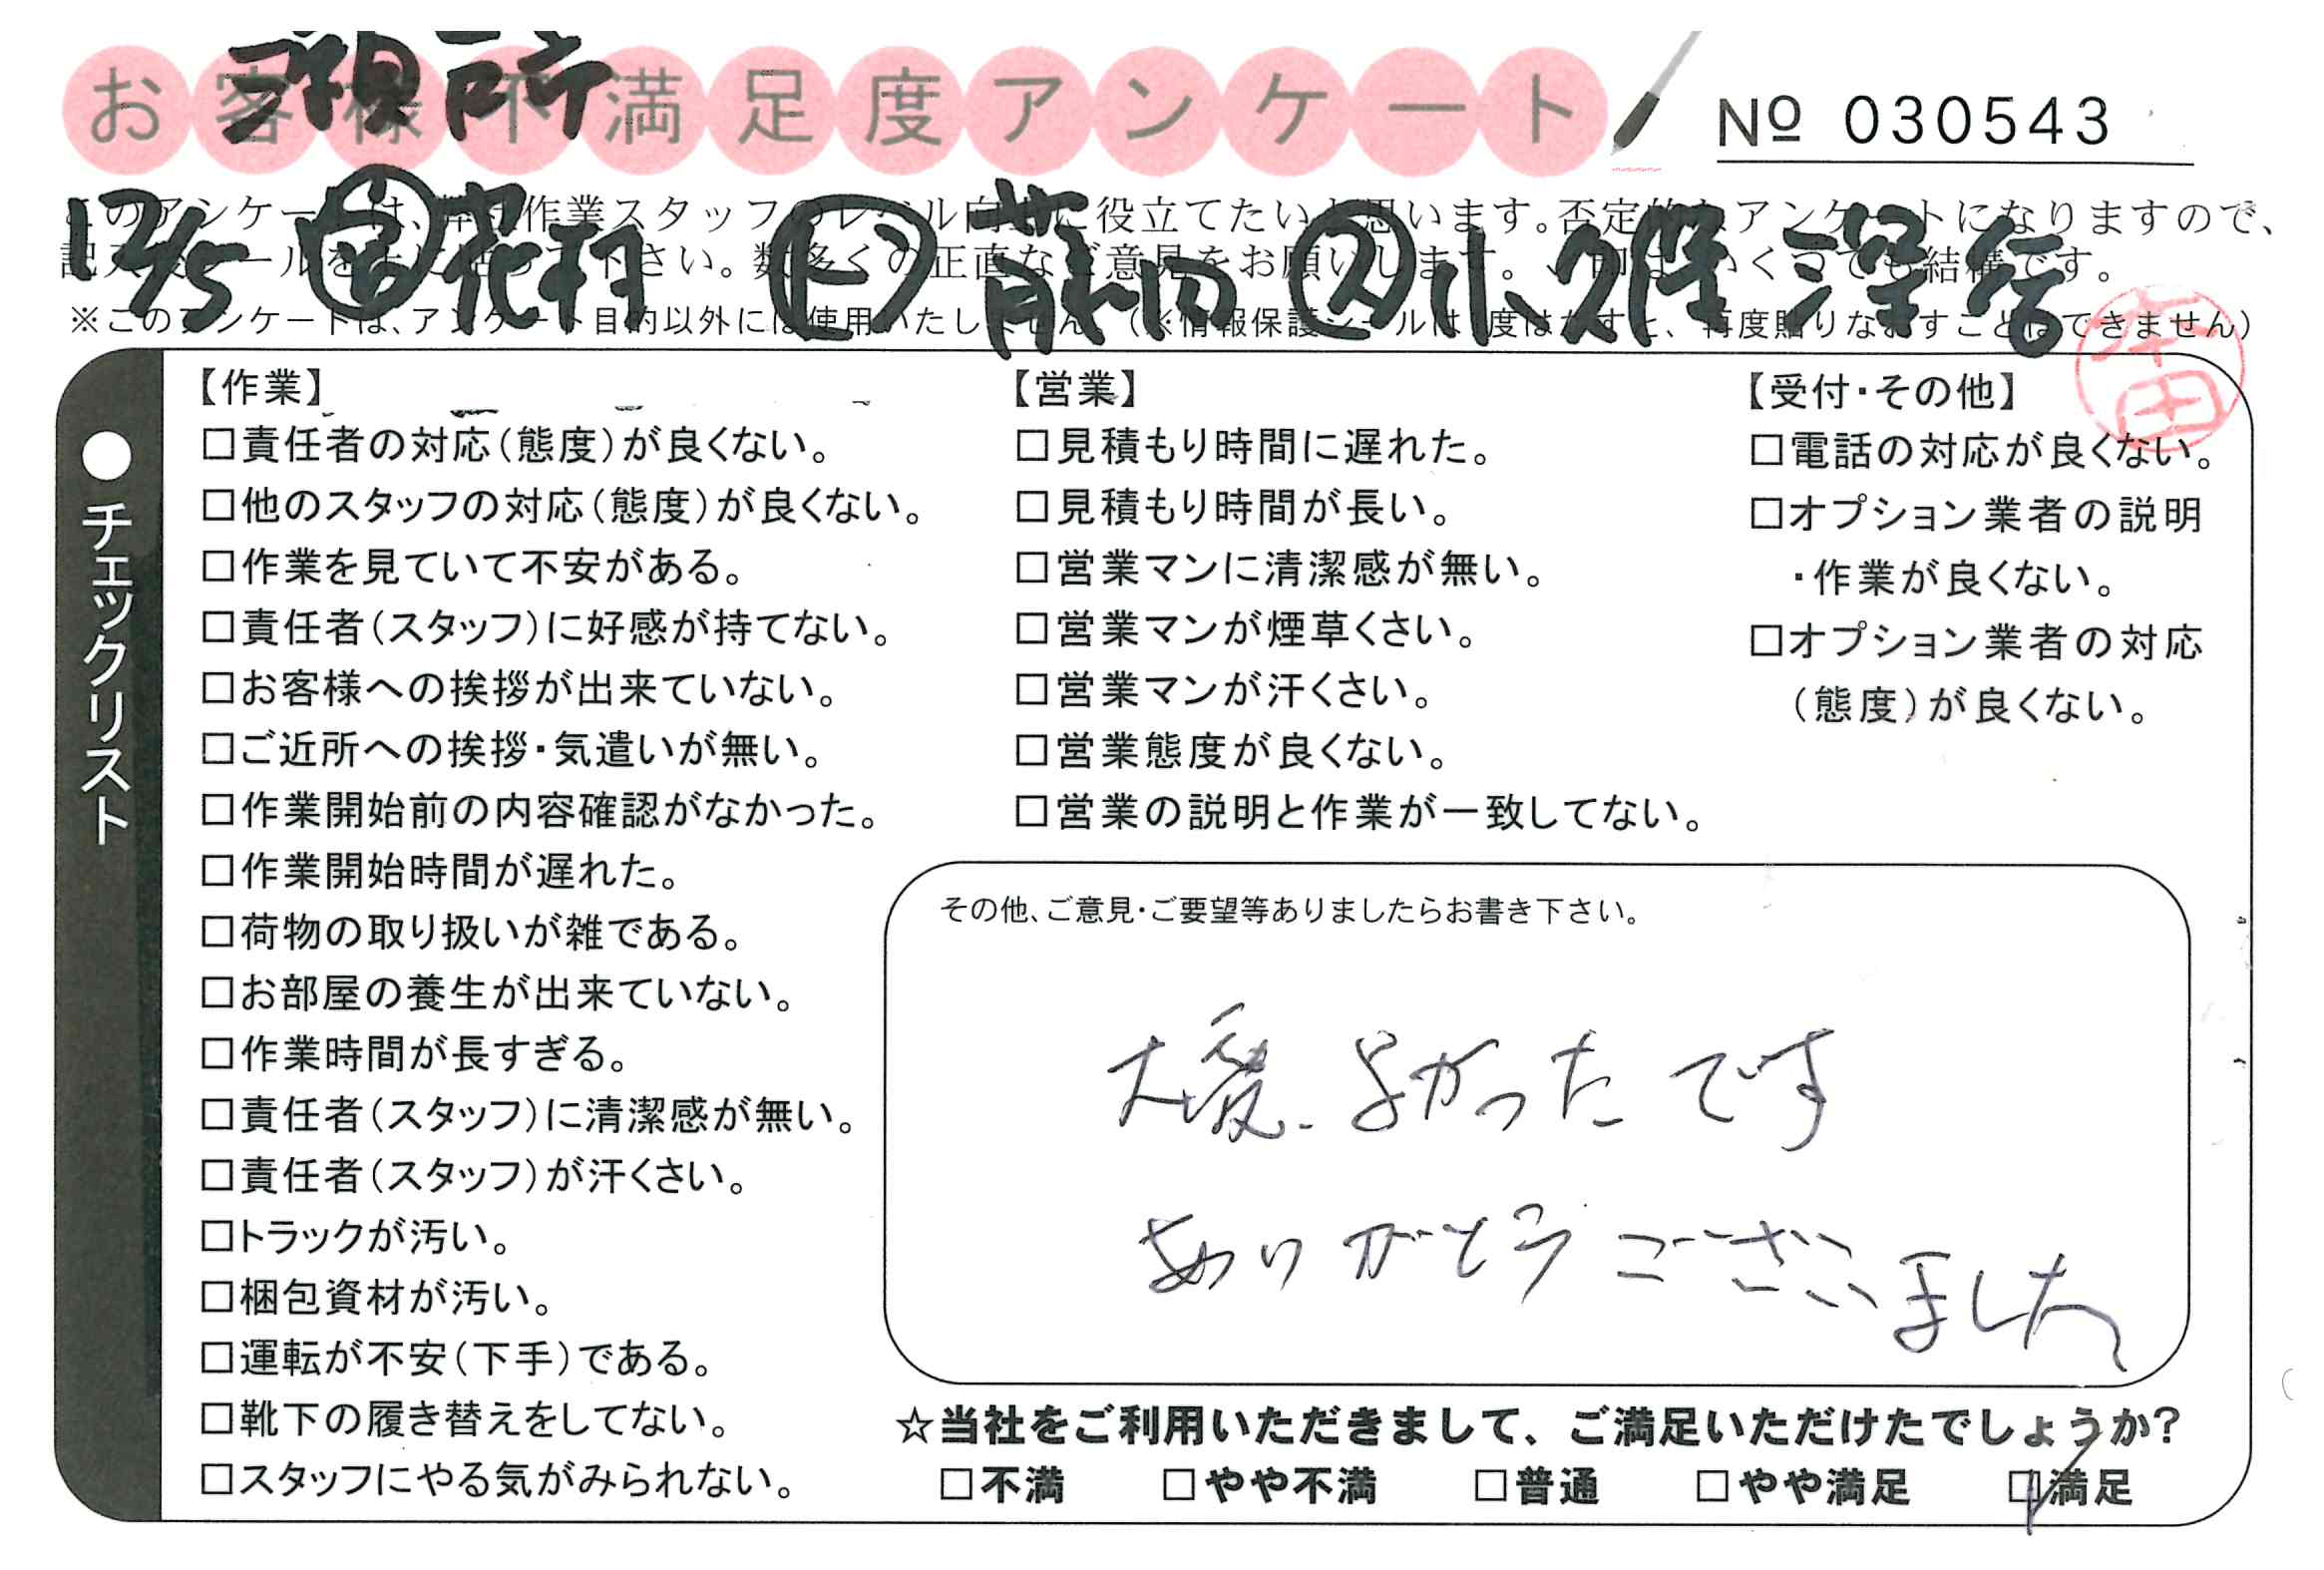 お客様不満足度アンケート
№ 030543
12/5 花村 ト 前田 ス 小久保 深谷
このアンケートは、弊社作業スタッフのレベル向上に役立てたいと思います。否定的なアンケートになりますので、
記入後シールを 下さい。数多くの正直なご意見をお願いします。 いくつでも結構です。
※このアンケートは、アンケート目的以外には使用いたしません。(※情報保護シールは1度はがすと、再度貼りなおすことはできません)
本田
●チェックリスト
【作業】
□責任者の対応(態度)が良くない。
□他のスタッフの対応(態度)が良くない。
□作業を見ていて不安がある。
□責任者(スタッフ)に好感が持てない。
□お客様への挨拶が出来ていない。
□ご近所への挨拶・気遣いが無い。
□作業開始前の内容確認がなかった。
□作業開始時間が遅れた。
□荷物の取り扱いが雑である。
□お部屋の養生が出来ていない。
□作業時間が長すぎる。
□責任者(スタッフ)に清潔感が無い。
□責任者(スタッフ)が汗くさい。
□トラックが汚い。
□梱包資材が汚い。
□運転が不安(下手)である。
□靴下の履き替えをしてない。
□スタッフにやる気がみられない。
【営業】
□見積もり時間に遅れた。
□見積もり時間が長い。
□営業マンに清潔感が無い。
□営業マンが煙草くさい。
□営業マンが汗くさい。
□営業態度が良くない。
□営業の説明と作業が一致してない。
【受付・その他】
□電話の対応が良くない。
□オプション業者の説明
・作業が良くない。
□オプション業者の対応
(態度)が良くない。
その他、ご意見・ご要望等ありましたらお書き下さい。
大変よかったです
ありがとうございました
☆当社をご利用いただきまして、ご満足いただけたでしょうか?
□不満 □やや不満 □普通 □やや満足 □満足